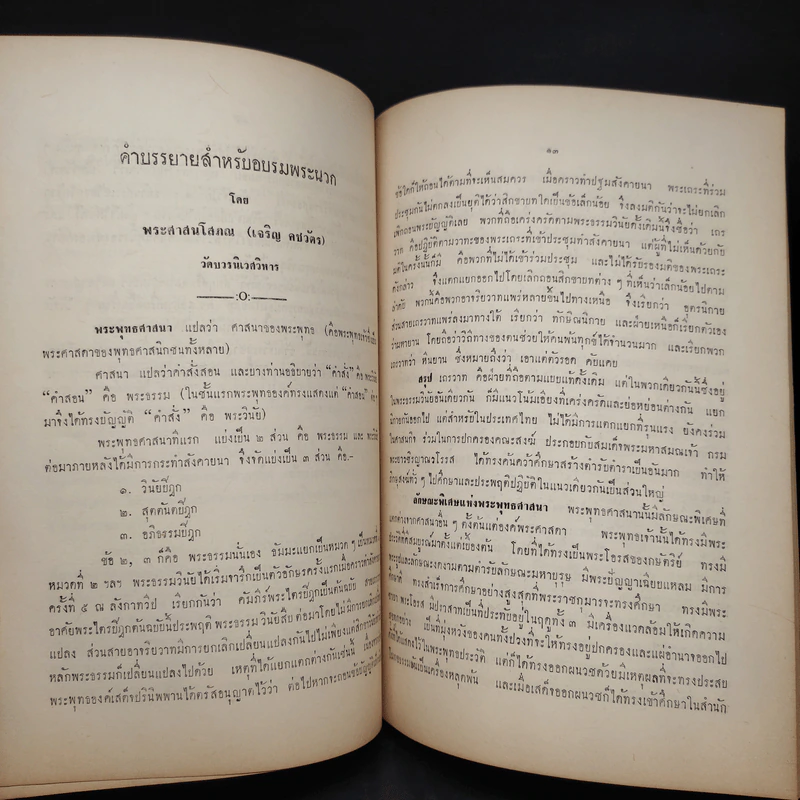 คำบรรยายสำหรับอบรมพระนวก
โดย
พระศาสนโสภณ (เจริญ คชวัตร)
วัดบวรนิเวศวิหาร
———:O:———
พระพุทธศาสนา แปลว่า ศาสนาของพระพุทธ (คือพระพุทธเจ้าซึ่งเป็น
พระศาสดาของพุทธศาสนิกชนทั้งหลาย)
ศาสนา แปลว่าคำสั่งสอน และบางท่านอธิบายว่า “คำสั่ง” คือ พระวินัย
“คำสอน” คือ พระธรรม (ในชั้นแรกพระพุทธองค์ทรงแสดงแต่ “คำสอน” ต่อ
มาจึงได้ทรงบัญญัติ “คำสั่ง” คือ พระวินัย)
พระพุทธศาสนาทีแรก แบ่งเป็น ๒ ส่วน คือ พระธรรม และ พระวินัย
ต่อมาภายหลังได้มีการกระทำสังคายนา จึงจัดแบ่งเป็น ๓ ส่วน คือ.-
๑. วินัยปิฎก
๒. สุตตันตปิฎก
๓. อภิธรรมปิฎก
ข้อ ๒, ๓ ก็คือ พระธรรมนั่นเอง ธัมมะแยกเป็นหมวด ๆ เป็น
หมวดที่ ๒ ฯลฯ พระธรรมวินัยได้เริ่มจารึกเป็นตัวอักษรครั้งแรกเมื่อคราวทำสังคายนา
ครั้งที่ ๕ ณ ลังกาทวีป เรียกกันว่า คัมภีร์พระไตรปิฎกต้นฉบับ
อาศัยพระไตรปิฎกต้นฉบับนี้ประพฤติ พระธรรมวินัยสืบต่อมาโดยไม่มีการเปลี่ยน
แปลง ส่วนสายอาจริยวาทมีการยกเลิกเปลี่ยนแปลงกันไปไม่เพียงแต่สิกขาวินัย
หลักพระธรรมก็เปลี่ยนแปลงไปด้วย เหตุที่ได้แยกแตกต่างกันเช่นนี้
พระพุทธองค์เสด็จปรินิพพานได้ตรัสอนุญาตไว้ว่า ต่อไปหากจะถอนข้อบัญญัติ
๑๓
ข้อใดก็ให้ถอนได้ตามที่จะเห็นสมควร เมื่อคราวทำปฐมสังคายนา พระเถระที่ร่วม
ประชุมกันไม่ตกลงเป็นยุติได้ว่าสิกขาบทใดเป็นข้อเล็กน้อย จึงลงมติกันว่าจะไม่ยกเลิก
เพิกถอนพระบัญญัติเลย พวกที่ถือเคร่งครัดตามพระธรรมวินัยดั้งเดิมนี้จึงชื่อว่า เถร
วาท คือปฏิบัติตามวาทะของพระเถระที่เข้าประชุมทำสังคายนา แต่ผู้ที่ไม่เห็นด้วยกับ
มติในครั้งนั้นก็มี คือพวกที่ไม่ได้เข้าร่วมประชุม และไม่ได้รับรองมติของพระเถระ
ดังกล่าว จึงแตกแยกออกไปโดยเลิกถอนสิกขาบทต่าง ๆ ที่เห็นว่าเล็กน้อยไปตาม
ลำดับ พวกนี้คือพวกอาจริยวาทแพร่หลายขึ้นไปทางเหนือ จึงเรียกว่า อุตรนิกาย
ส่วนสายเถรวาทแพร่ลงมาทางใต้ เรียกว่า ทักษิณนิกาย และฝ่ายเหนือก็เรียกตัวเอง
ว่ามหายาน โดยถือว่าวิถีทางของตนช่วยให้คนพ้นทุกข์ได้จำนวนมาก และเรียกพวก
เถรวาทว่า หินยาน ซึ่งหมายถึงว่า เอาแต่ตัวรอด คับแคบ
สรุป เถรวาท คือฝ่ายที่ถือตามแบบแท้ดั้งเดิม แต่ในพวกเดียวกันนี้ซึ่งอยู่
ในพระธรรมวินัยอันเดียวกัน ก็มีแนวโน้มเอียงที่เคร่งครัดและย่อหย่อนต่างกัน แยก
นิกายกันออกไป แต่สำหรับในประเทศไทย ไม่ได้มีการแตกแยกที่รุนแรง ยังคงร่วม
ในศาสนกิจ ร่วมในการปกครองคณะสงฆ์ ประกอบกับสมเด็จพระมหาสมณเจ้า กรม
พระยาวชิรญาณวโรรส ได้ทรงค้นคว้าศึกษาสร้างตำรับตำราเป็นอันมาก ทำให้
ภิกษุสงฆ์ทั่ว ๆ ไปศึกษาและประพฤติปฏิบัติในแนวเดียวกันเป็นส่วนใหญ่
ลักษณะพิเศษแห่งพระพุทธศาสนา พระพุทธศาสนานั้นมีลักษณะพิเศษที่
แตกต่างจากศาสนาอื่น ๆ ตั้งต้นแต่องค์พระศาสดา พระพุทธเจ้านั้นได้ทรงมีพระ
ประวัติที่ดีสมบูรณ์มาตั้งแต่เบื้องต้น โดยที่ได้ทรงเป็นพระโอรสของกษัตริย์ ทรงมี
พระรูปและลักษณะงดงามตามตำรับลักษณะมหาบุรุษ มีพระปัญญาเฉียบแหลม มีการ
ศึกษาดี ทรงสำเร็จการศึกษาอย่างสูงสุดที่พระราชกุมารจะทรงศึกษา ทรงมีพระ
ชายา พระโอรส มีปราสาทเป็นที่ประทับอยู่ในฤดูทั้ง ๓ มีเครื่องแวดล้อมให้เกิดความ
สุขทุกอย่าง เป็นที่มุ่งหวังของคนทั้งปวงที่จะให้ทรงอยู่ปกครองและแผ่อำนาจออกไป
ดังที่ได้แสดงไว้ในพระพุทธประวัติ แต่ก็ได้ทรงออกผนวชด้วยมีเหตุผลที่จะทรงประสบ
โมกขธรรมเป็นเครื่องหลุดพ้น และเมื่อเสด็จออกผนวชก็ได้ทรงเข้าศึกษาในสำนัก